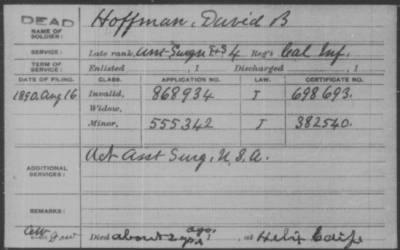 DEAD
NAME OF SOLDIER: Hoffman, David B
SERVICE: Late rank, Asst Surgn F&S 4 Reg't Cal Inf.
TERM OF SERVICE: Enlisted , 1 Discharged , 1
DATE OF FILING. CLASS. APPLICATION NO. LAW. CERTIFICATE NO.
1890. Aug 16 Invalid, 868934 J 698693.
Widow,
Minor, 555342 J 382540.
ADDITIONAL SERVICES: Act Asst Surg, U.S.A.
REMARKS:
Died about 2 yrs ago, 1 , at Helix Calif